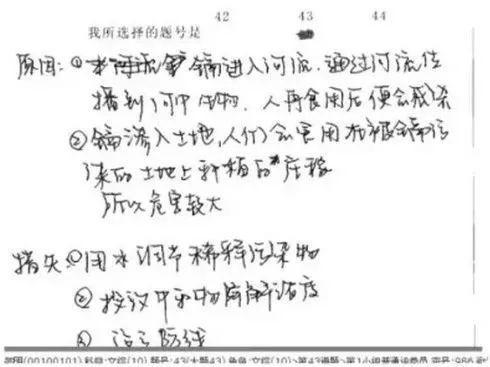 42 43 44
我所选择的题号是
原因：①镉进入河流，通过河流传
播到河中生物，人再食用后便会感染
②镉渗入土地，人们会食用在被镉污
染的土地上种植的庄稼
所以危害较大
措失①用水调节稀释污染物
②投议中和物质解浓度
③设立防线